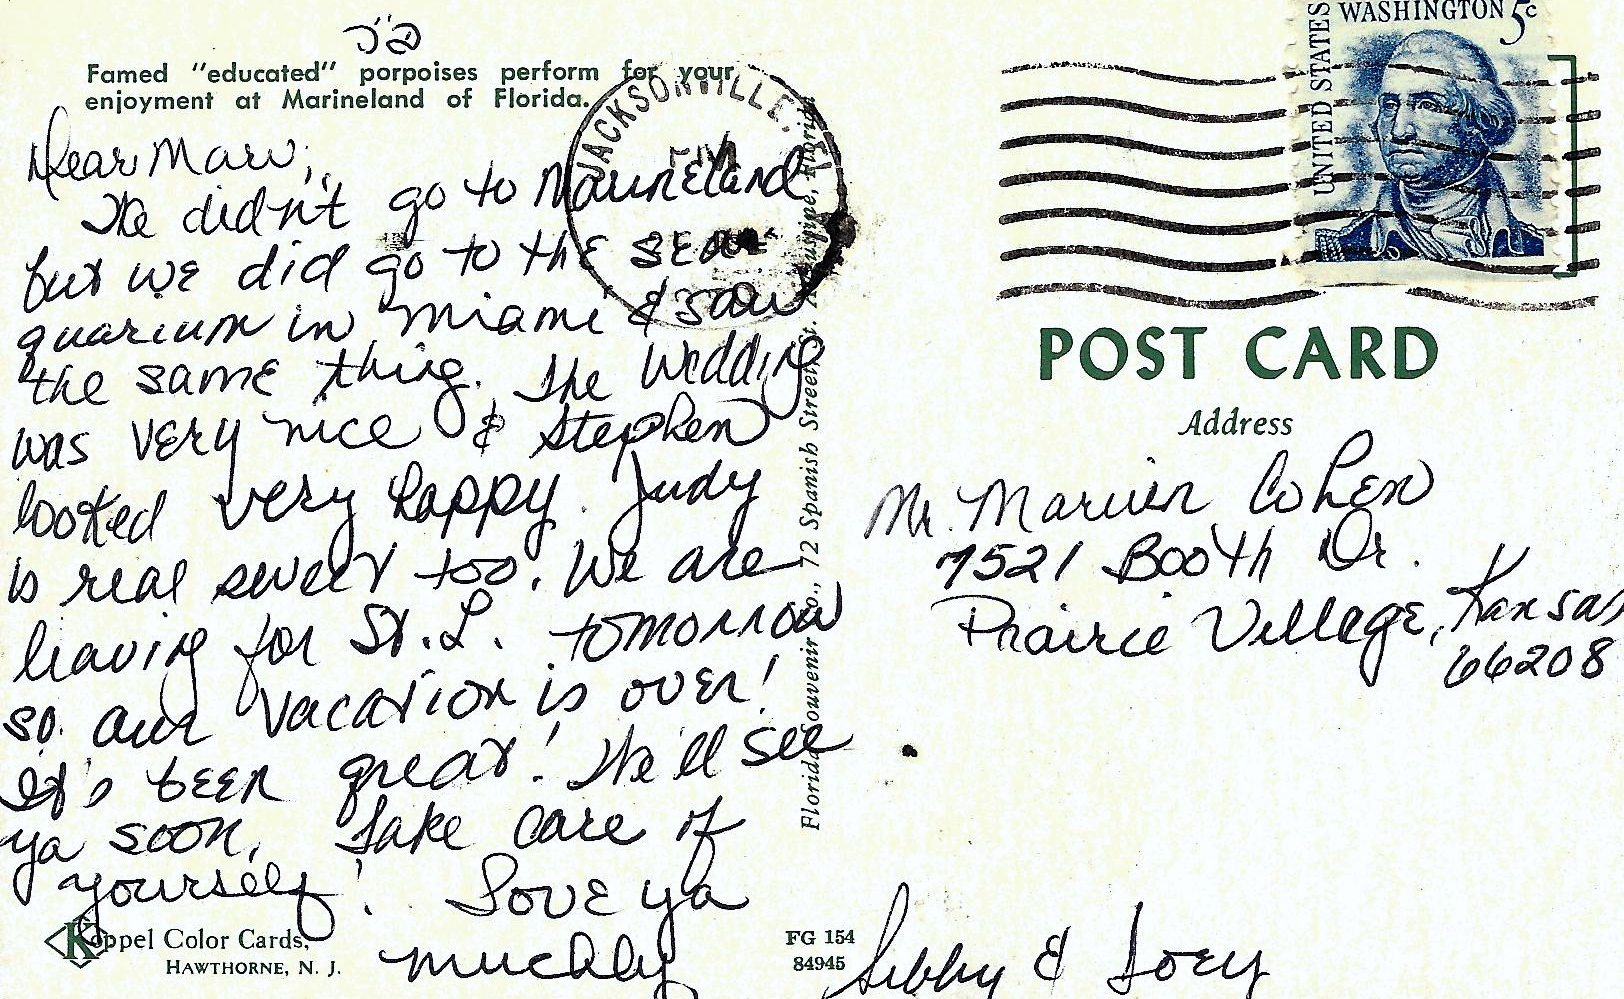 ב״ה
Famed "educated" porpoises perform for your
enjoyment at Marineland of Florida.
Dear Marv,
We didn't go to Marineland
but we did go to the sea
quarium in Miami & saw
the same thing. The wedding
was very nice & Stephen
looked very happy. Judy
is real sweet too. We are
leaving for St. L. tomorrow
so our vacation is over!
It's been great! We'll see
ya soon. Take care of
yourself! Love ya
muchly
Libby & Joey
Koppel Color Cards,
HAWTHORNE, N. J.
FG 154
84945
Florida Souvenir Co., 72 Spanish Street, St. Augustine, Florida
JACKSONVILLE, FL
PM
UNITED STATES
WASHINGTON 5c
POST CARD
Address
Mr. Marvin Cohen
7521 Booth Dr.
Prairie Village, Kansas
66208